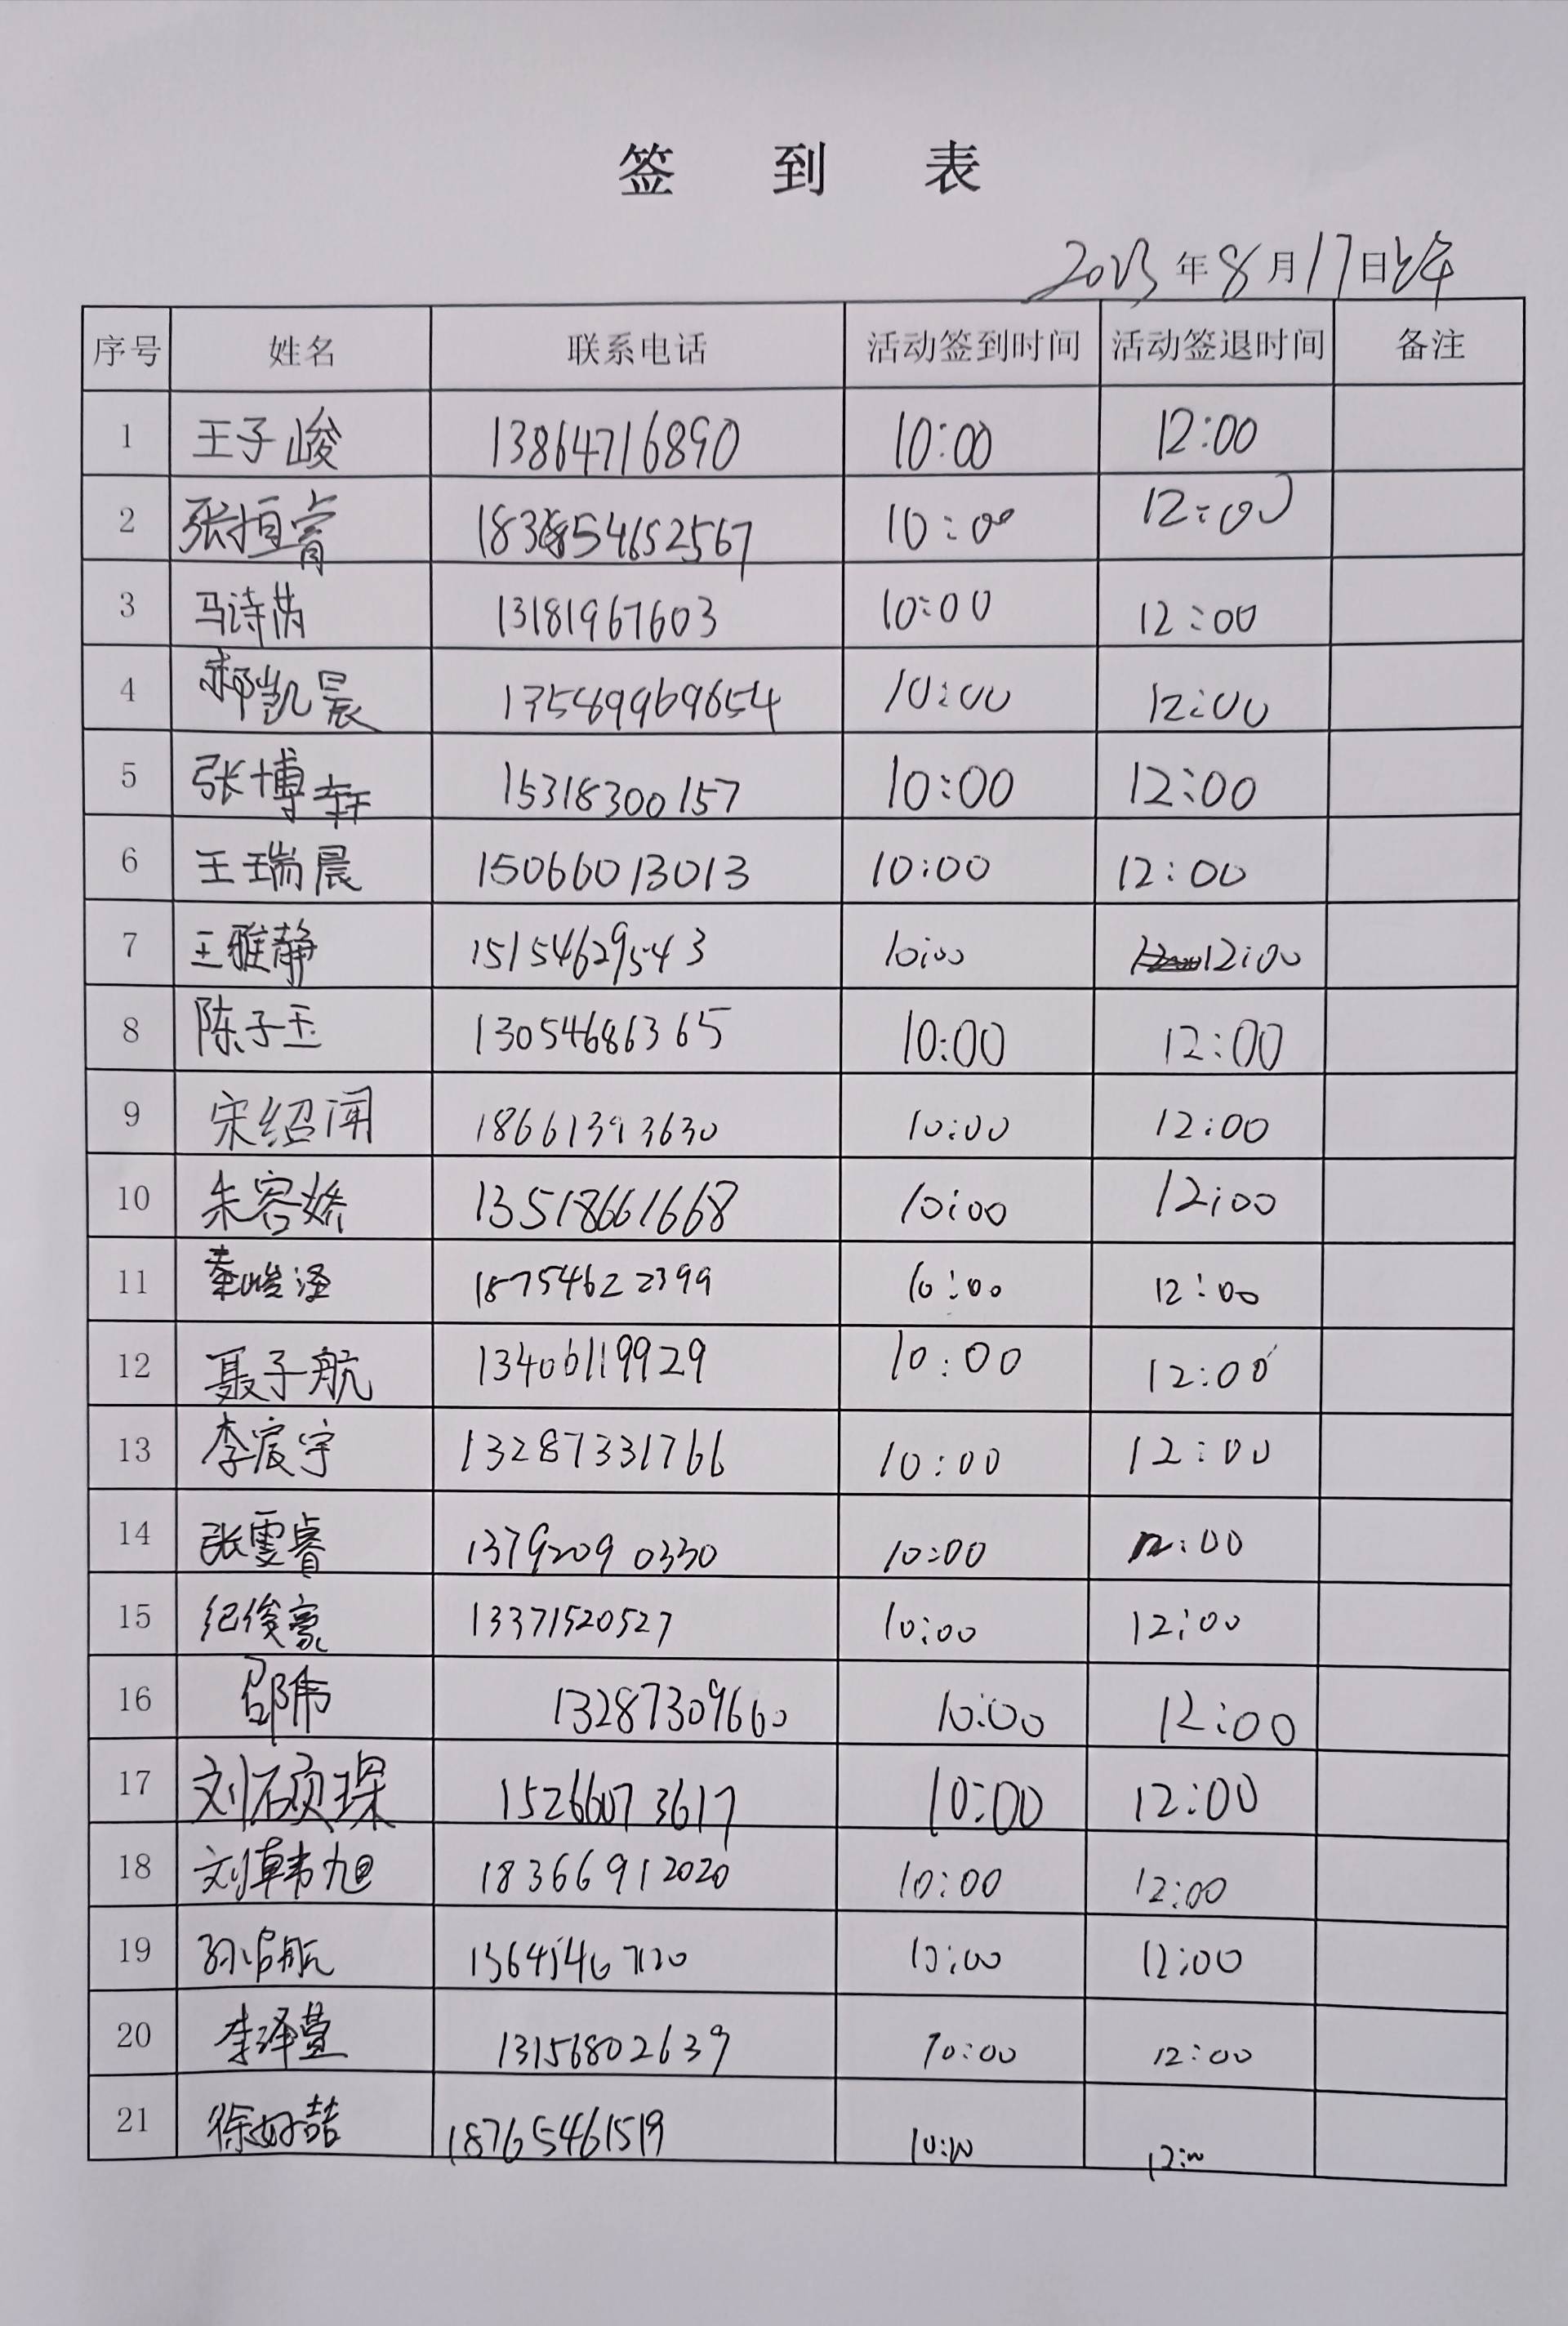 签 到 表
2023年8月17日上午
序号 姓名 联系电话 活动签到时间 活动签退时间 备注
1 王子峻 13864716890 10:00 12:00
2 张恒睿 10:00 12:00
3 马诗芮 13181967603 10:00 12:00
4 郝凯晨 13589969654 10:00 12:00
5 张博轩 15318300157 10:00 12:00
6 王瑞晨 15066013013 10:00 12:00
7 王雅静 15154629543 10:00 12:00
8 陈子玉 13054686365 10:00 12:00
9 宋绍闻 18661393630 10:00 12:00
10 朱容娇 13518661668 10:00 12:00
11 秦峻泽 18754622399 10:00 12:00
12 聂子航 13406119929 10:00 12:00
13 李宸宇 13287331766 10:00 12:00
14 张雯睿 13792090330 10:00 12:00
15 纪俊豪 13371520527 10:00 12:00
16 邵伟 13287309660 10:00 12:00
17 刘硕琛 15266073617 10:00 12:00
18 刘韩旭 18366912020 10:00 12:00
19 10:00 12:00
20 李泽萱 13156802639 10:00 12:00
21 徐好喆 18765461519 10:00 12:00